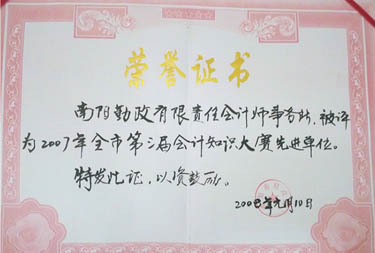 荣誉证书
南阳勤政有限责任会计师事务所，被评
为2007年全市第三届会计知识大赛先进单位。
特发此证，以资鼓励。
2008年元月10日